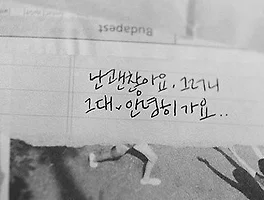 Budapest
난 괜찮아요. 그러니
그대, 안녕히 가요..